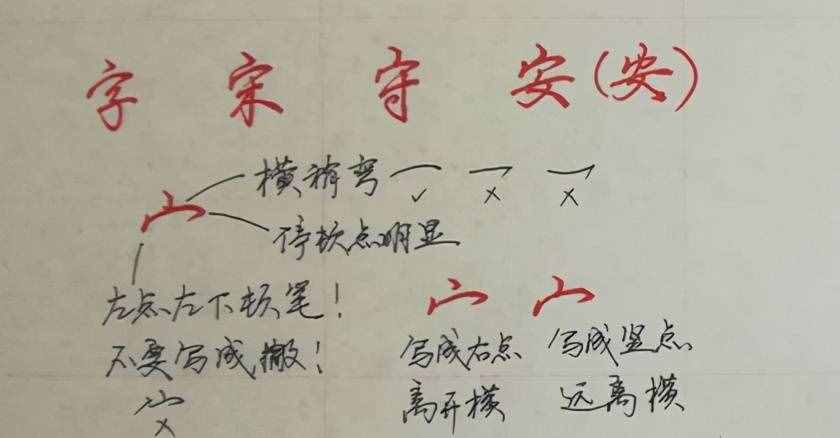 字 宋 守 安(安)
横稍弯 ✓ × ×
停顿点明显
左点左下顿笔!
不要写成撇!
×
写成右点 写成竖点
离开横 远离横